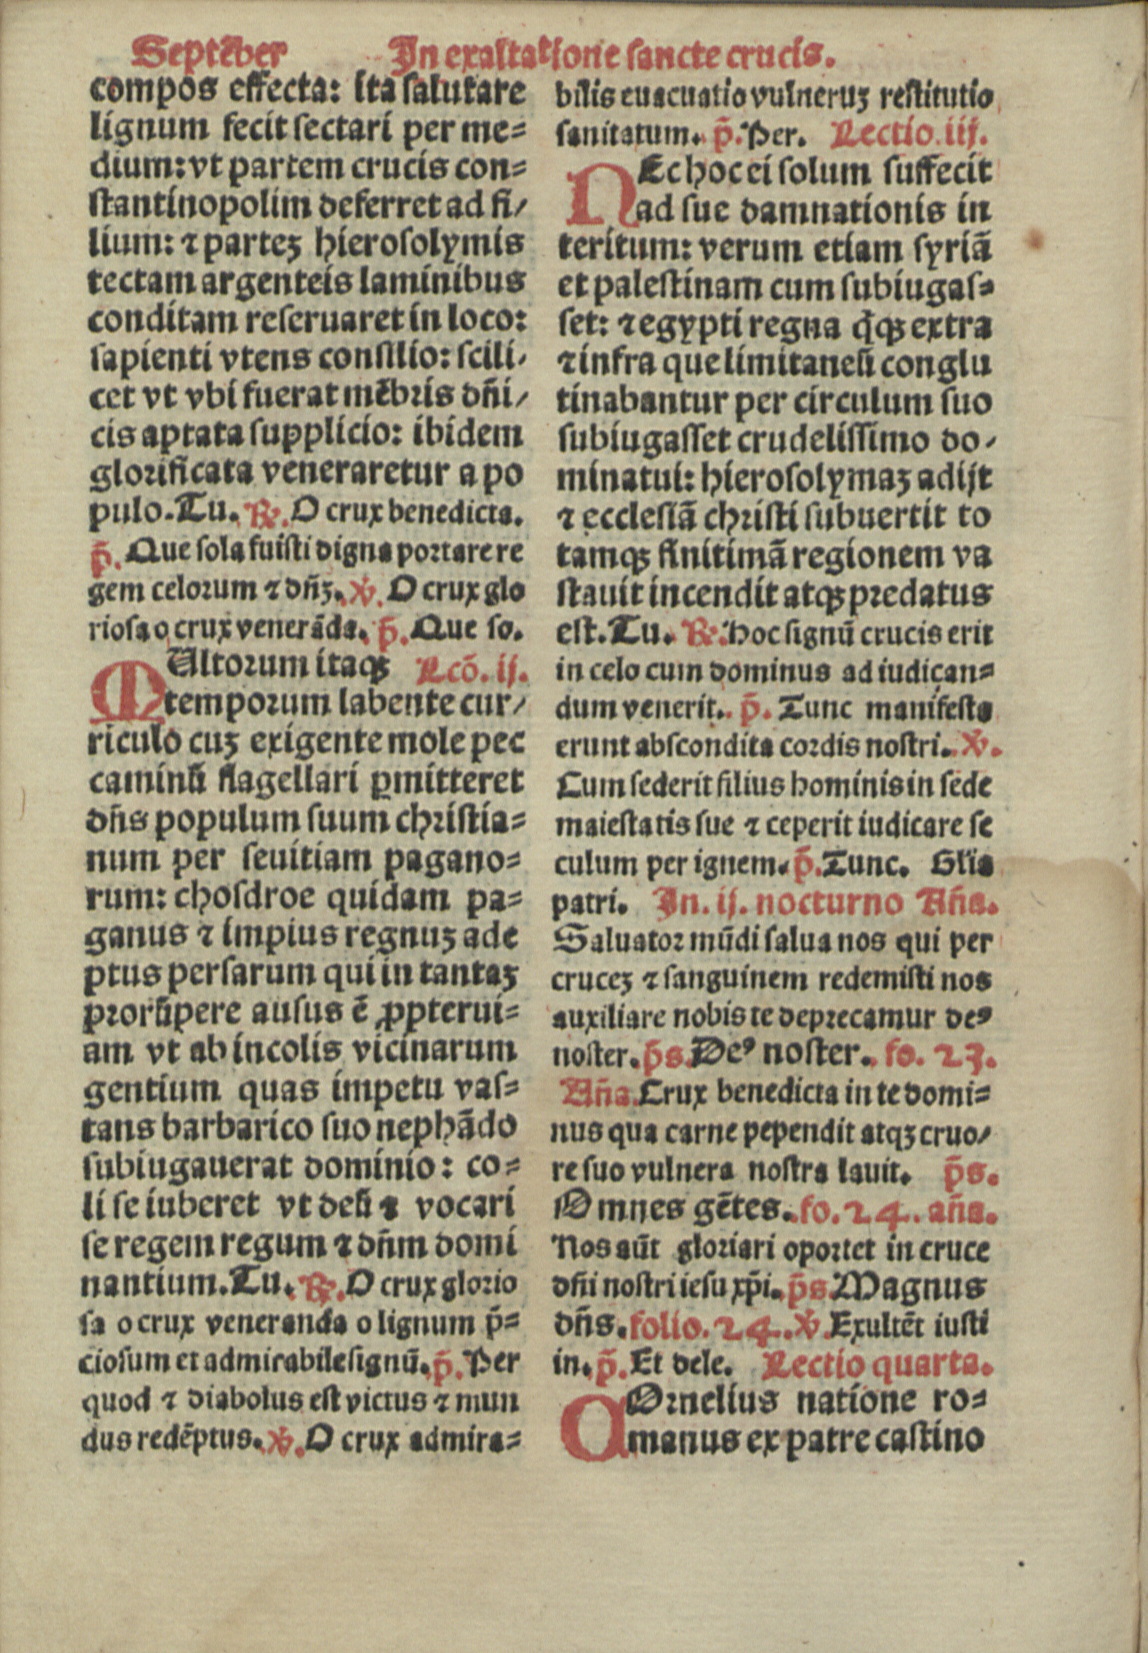 Septēber In exaltatione sancte crucis.
compos effecta: ita salutare
lignum fecit sectari per me=
dium: vt partem crucis con=
stantinopolim deferret ad fi/
lium: ⁊ parteꝫ hierosolymis
tectam argenteis laminibus
conditam reseruaret in loco:
sapienti vtens consilio: scili/
cet vt vbi fuerat mēbris dn̄i/
cis aptata supplicio: ibidem
glorificata veneraretur a po
pulo. Tu. ℟. O crux benedicta.
p̄. Que sola fuisti digna portare re
gem celorum ⁊ dn̄ꝫ. ℣. O crux glo
riosa o crux venerāda. p̄. Que so.
MUltorum itaqꝫ Lcō. ij.
temporum labente cur/
riculo cuꝫ exigente mole pec
caminū flagellari ꝑmitteret
dn̄s populum suum christia=
num per seuitiam pagano=
rum: chosdroe quidam pa=
ganus ⁊ impius regnuꝫ ade
ptus persarum qui in tantaꝫ
prorūpere ausus ē ꝓpterui=
am vt ab incolis vicinarum
gentium quas impetu vas=
tans barbarico suo nephādo
subiugauerat dominio: co=
li se iuberet vt deū ⁊ vocari
se regem regum ⁊ dn̄m domi
nantium. Tu. ℟. O crux glorio
sa o crux veneranda o lignum p̄=
ciosum et admirabile signū. p̄. Per
quod ⁊ diabolus est victus ⁊ mun
dus redēptus. ℣. O crux admira=
bilis euacuatio vulneruꝫ restitutio
sanitatum. p̄. Per. Lectio. iij.
NEc hoc ei solum suffecit
ad sue damnationis in
teritum: verum etiam syriā
et palestinam cum subiugas=
set: ⁊ egypti regna q̄qꝫ extra
⁊ infra que limitanesi conglu
tinabantur per circulum suo
subiugasset crudelissimo do/
minatui: hierosolymaꝫ adijt
⁊ ecclesiā christi subuertit to
tamqꝫ finitimā regionem va
stauit incendit atqꝫ predatus
est. Tu. ℟. Hoc signū crucis erit
in celo cum dominus ad iudican=
dum venerit. p̄. Tunc manifesta
erunt abscondita cordis nostri. ℣.
Cum sederit filius hominis in sede
maiestatis sue ⁊ ceperit iudicare se
culum per ignem. p̄. Tunc. Glia
patri. In. ij. nocturno An̄a.
Saluator mūdi salua nos qui per
cruceꝫ ⁊ sanguinem redemisti nos
auxiliare nobis te deprecamur deꝰ
noster. p̄s. Deꝰ noster. fo. 23.
An̄a. Crux benedicta in te domi=
nus qua carne pependit atqꝫ cruo/
re suo vulnera nostra lauit. p̄s.
Omnes gētes. fo. 24. an̄a.
Nos aūt gloriari oportet in cruce
dn̄i nostri iesu xp̄i. p̄s. Magnus
dn̄s. folio. 24. ℣. Exultēt iusti
in. p̄. Et dele. Lectio quarta.
COrnelius natione ro=
manus ex patre castino